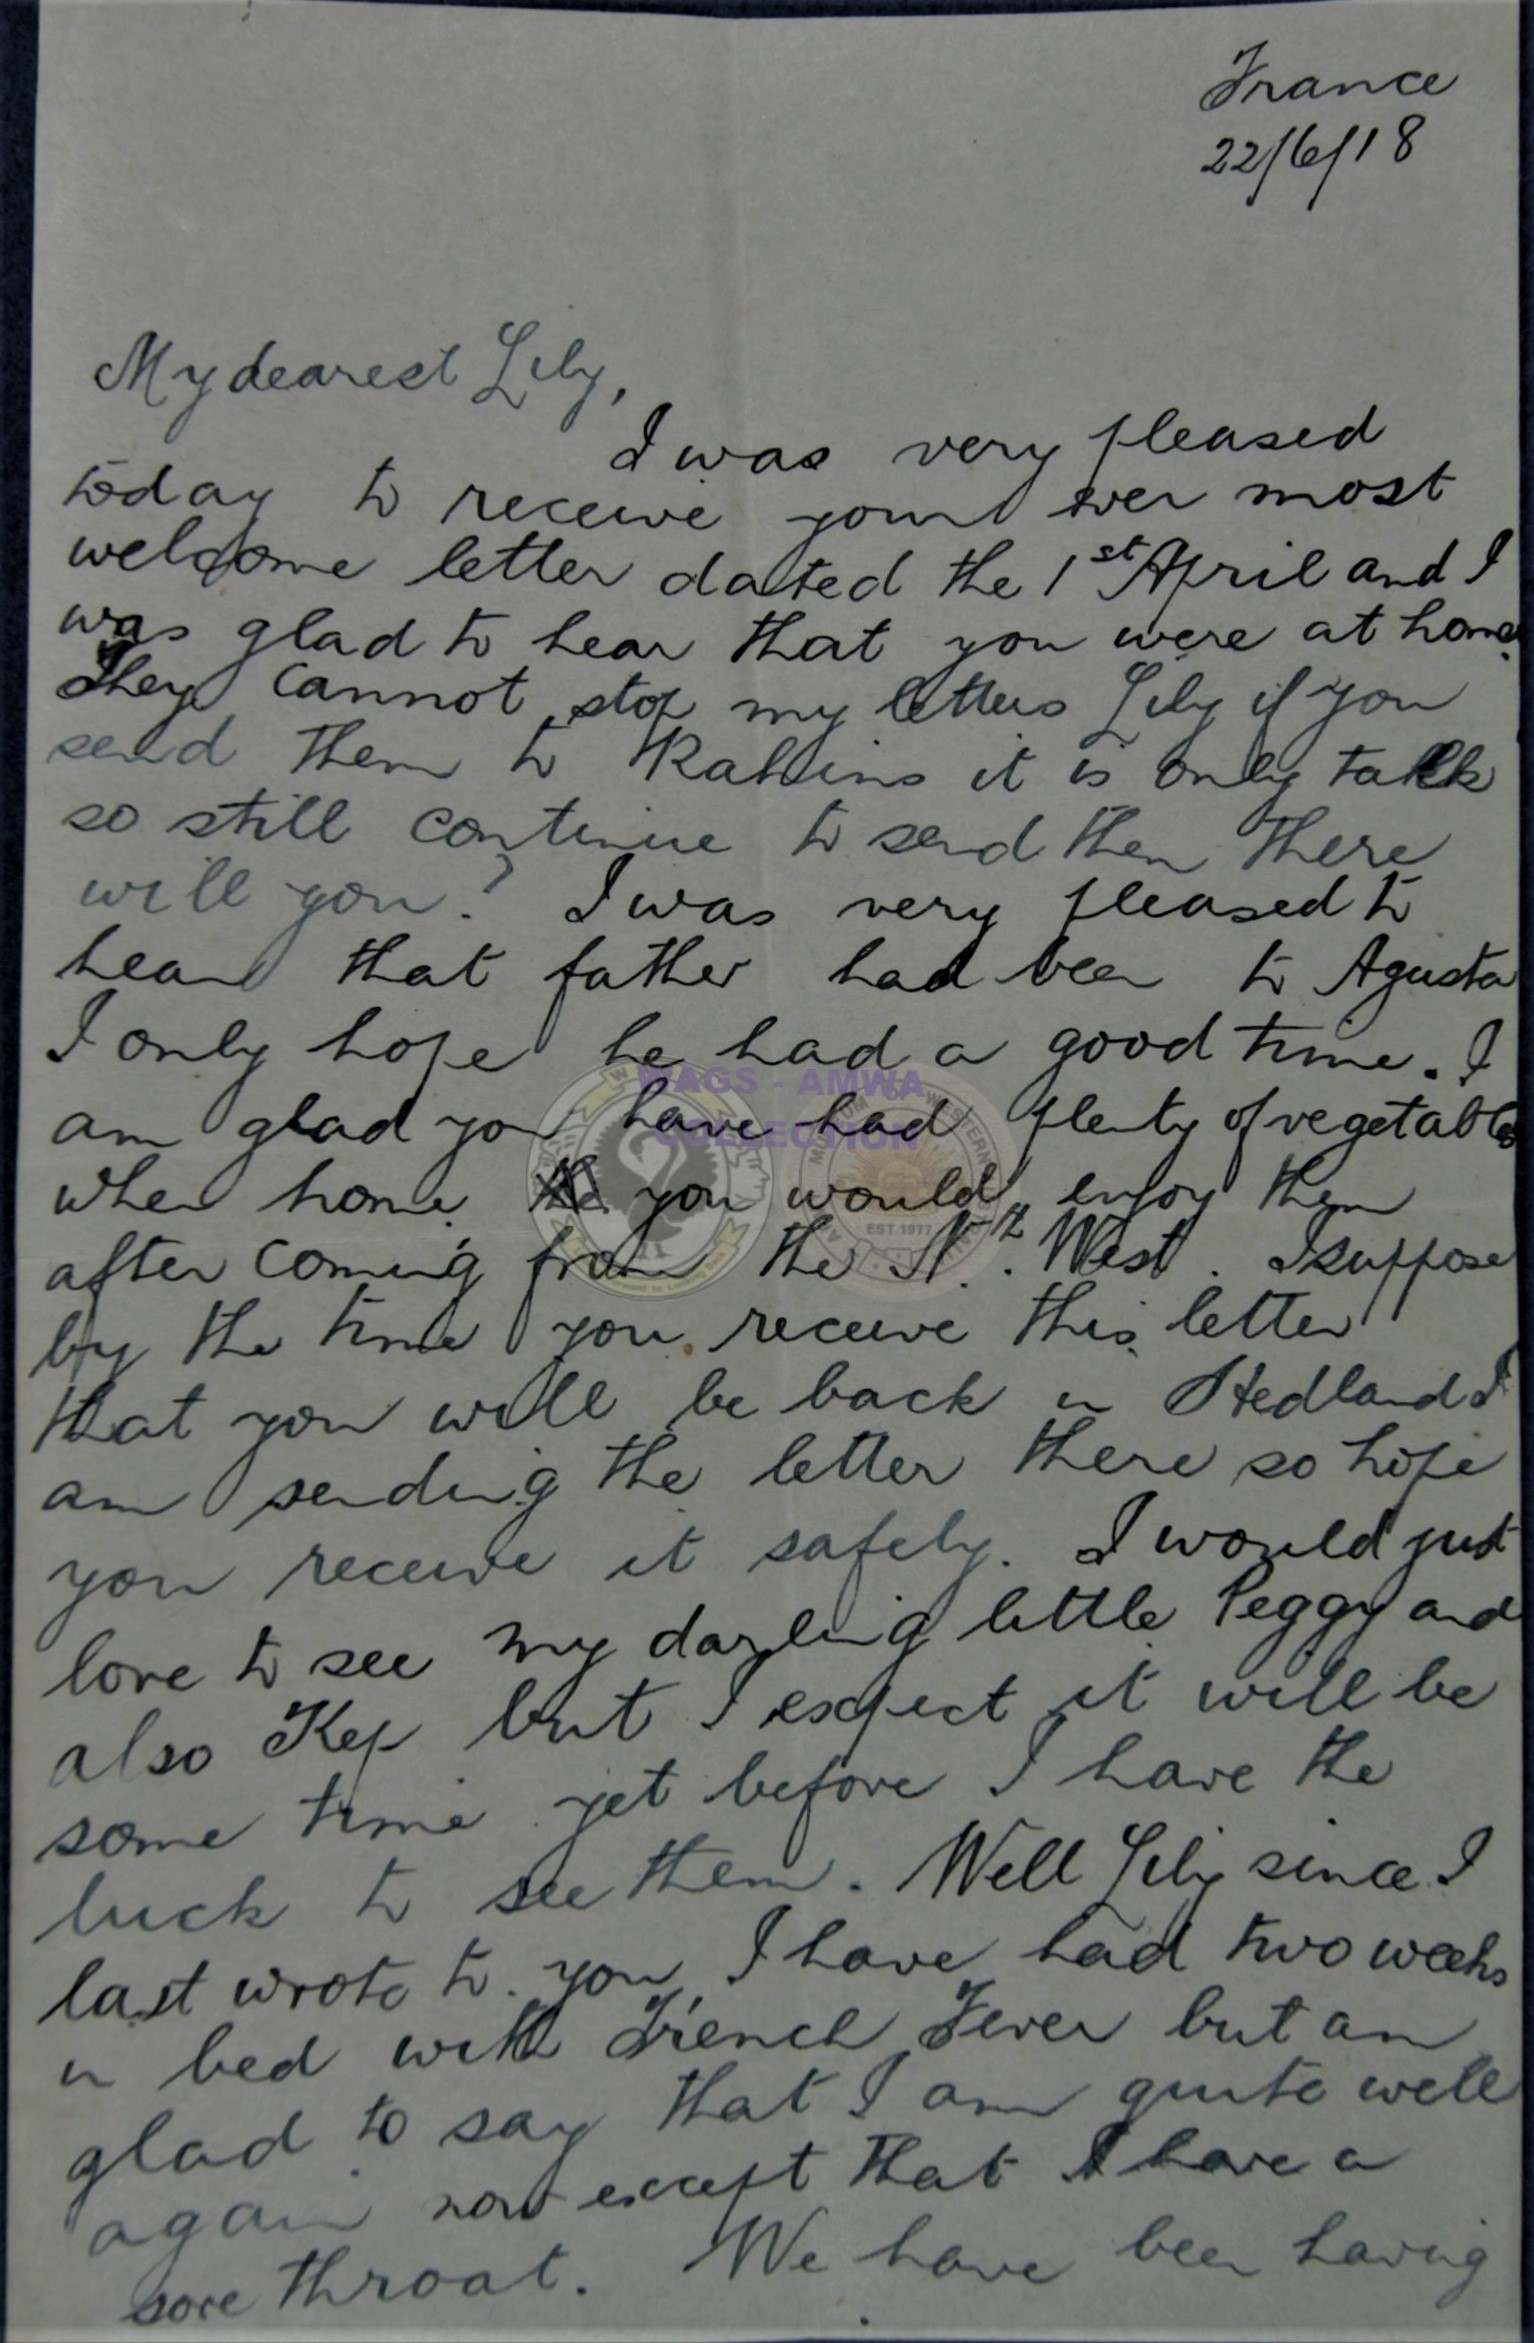 France
22/6/18
My dearest Lily,
I was very pleased
today to receive your ever most
welcome letter dated the 1st April and I
was glad to hear that you were at home.
They cannot stop my letters Lily if you
send them to Rahins it is only talk
so still continue to send them there
will you? I was very pleased to
hear that father had been to Agusta
I only hope he had a good time. I
am glad you have had plenty of vegetables
when home. you would enjoy them
after coming from the Nth. West. I suppose
by the time you receive this letter
that you will be back in Hedland I
am sending the letter there so hope
you receive it safely. I would just
love to see my darling little Peggy and
also Kep but I expect it will be
some time yet before I have the
luck to see them. Well Lily since I
last wrote to you I have had two weeks
in bed with Trench Fever but am
glad to say that I am quite well
again now except that I have a
sore throat. We have been having
WAGS - AMWA
COLLECTION
EST 1977